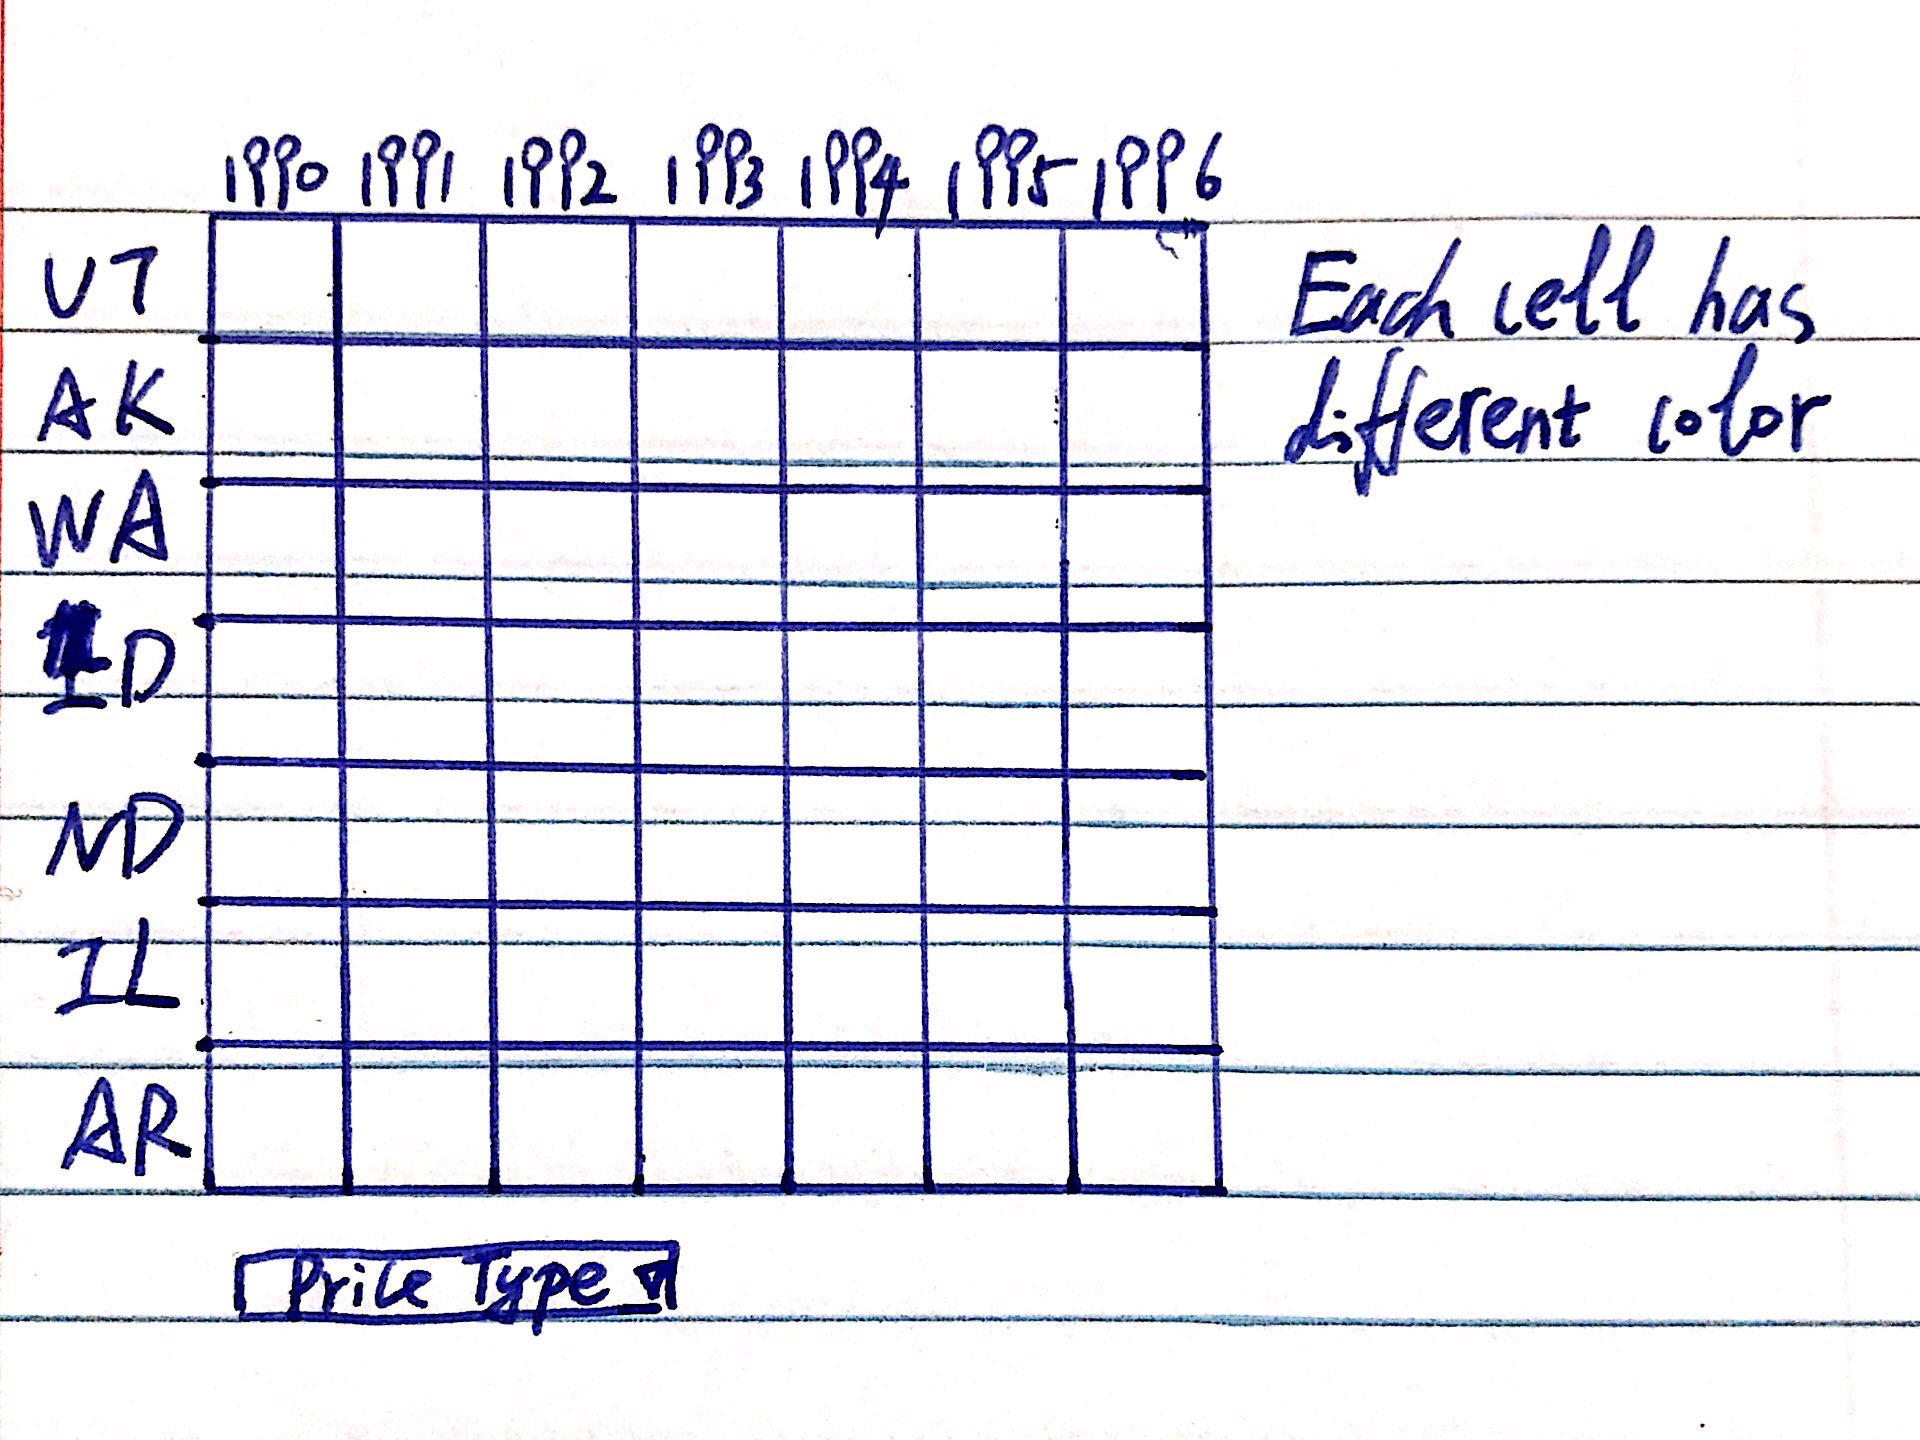 1990 1991 1992 1993 1994 1995 1996
UT
AK
WA
ID
ND
IL
AR
Each cell has
different color
Price Type